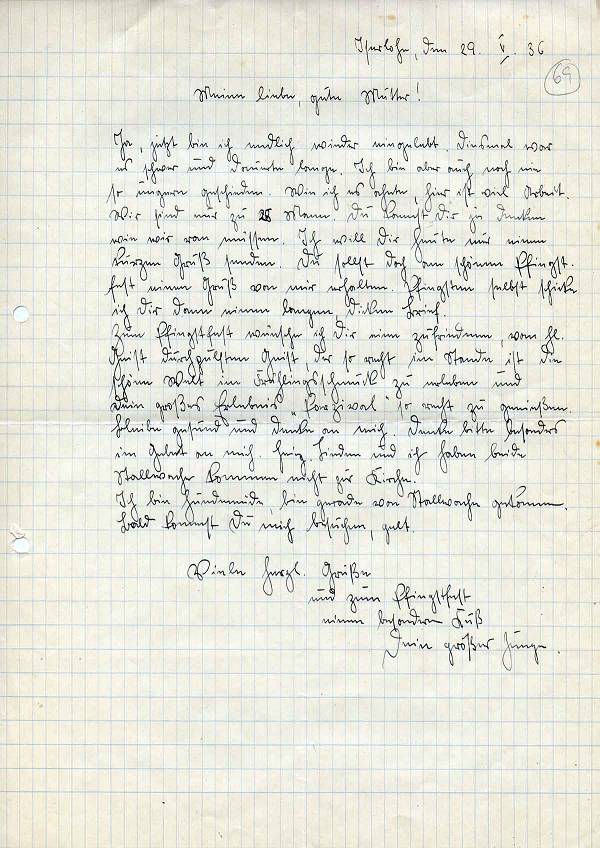 Iserlohn, den 29. V. 36
69
Meine liebe, gute Mutter!
Ja, jetzt bin ich endlich wieder eingelebt. Diesmal war
es schwer und dauerte lange. Ich bin aber auch noch nie
so ungern geschieden. Wie ich es ahnte, hier ist viel Arbeit.
Wir sind nur zu Mann. Du kannst Dir ja denken
wie wir ran müssen. Ich will Dir heute nur einen
kurzen Gruß senden. Du sollst doch am schönen Pfingst-
fest einen Gruß von mir erhalten. Pfingsten selbst schicke
ich Dir dann einen langen, dicken Brief.
Zum Pfingstfest wünsche ich Dir eine zufriedenen, vom hl.
Geist durchglühten Geist, der so recht im Stande ist die
schöne Welt im Frühlingsschmuck zu erleben und
Dein großes Erlebnis „Parzival" so recht zu genießen.
Bleibe gesund und denke an mich. Denke bitte besonders
im Gebet an mich. Heinz Linden und ich haben beide
Stallwache kommen nicht zur Kirche.
Ich bin hundemüde, bin gerade von Stallwache gekommen.
Bald kommst Du mich besuchen, gelt.
Viele herzl. Grüße
und zum Pfingstfest
einen besonderen Kuß
Dein großer Junge.